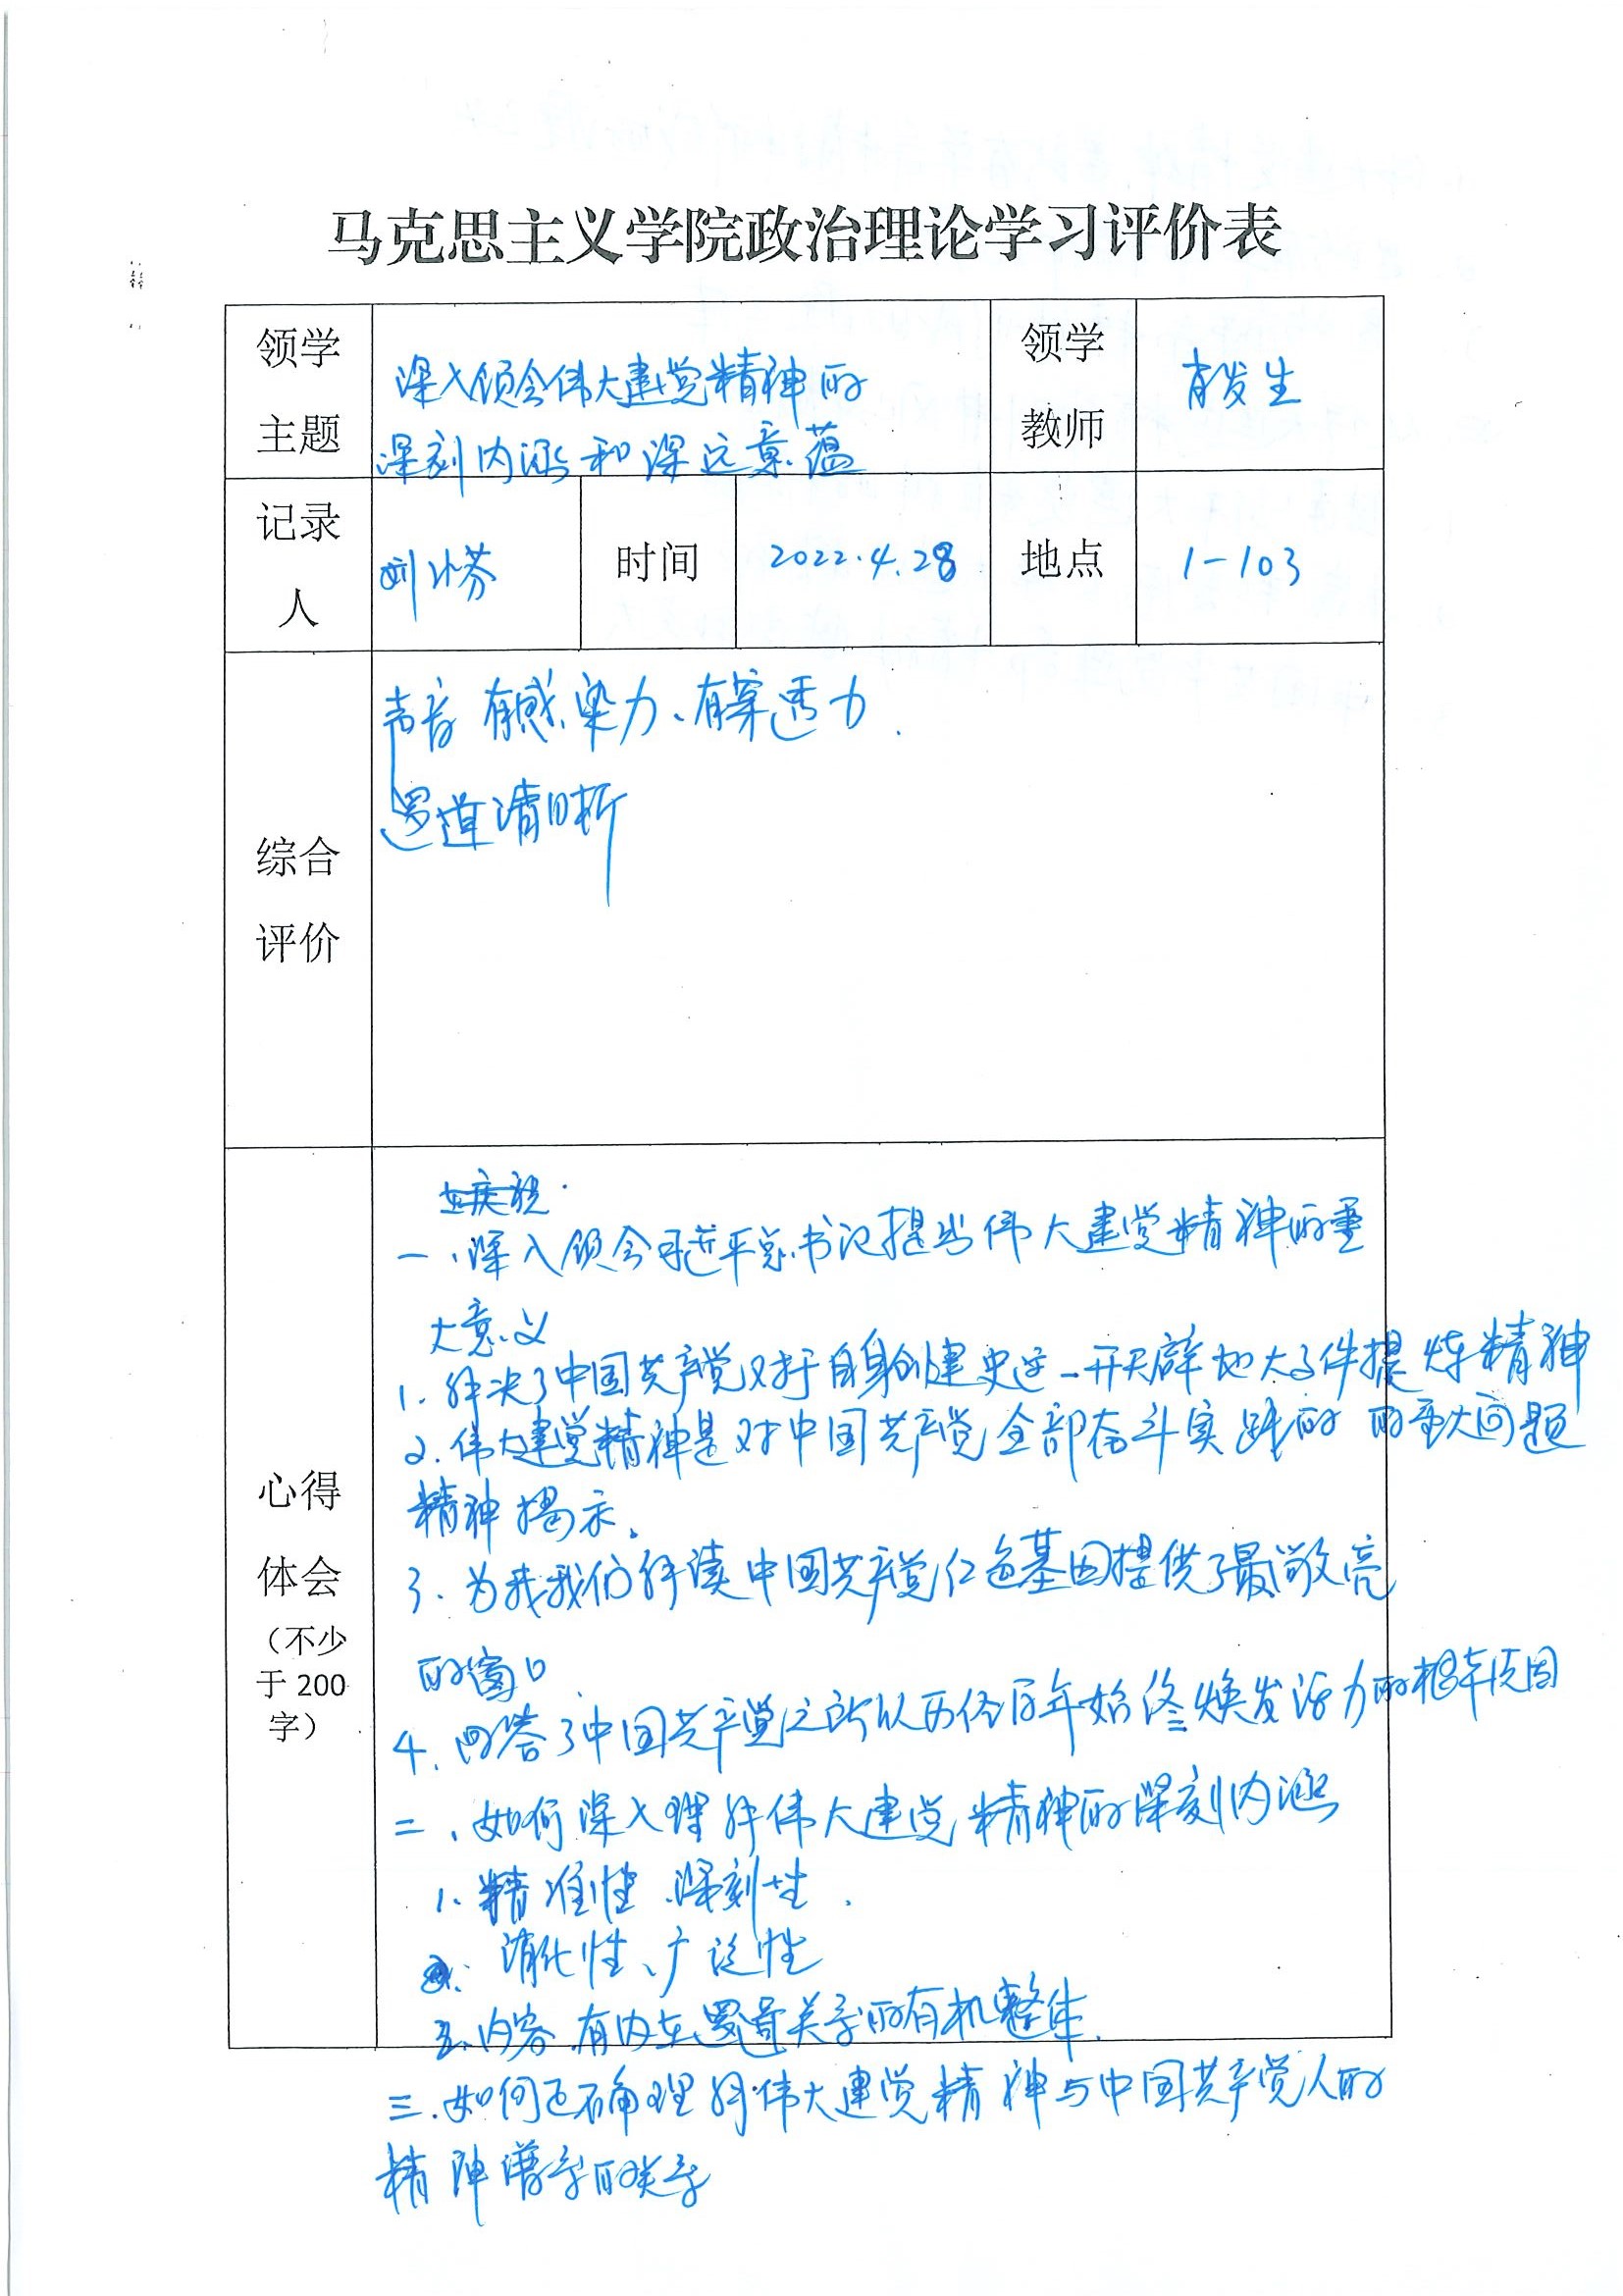 马克思主义学院政治理论学习评价表
领学主题
深入领会伟大建党精神的
深刻内涵和深远意蕴
领学教师
肖发生
记录人
刘小芬
时间
2022.4.28
地点
1-103
综合评价
声音有感染力、有穿透力.
逻辑清晰
心得体会
（不少于200字）
一、深入领会习近平总书记提出伟大建党精神的重
大意义
1. 解决了中国共产党对于自身创建史这一开天辟地大事件提炼精神
的重大问题
2. 伟大建党精神是对中国共产党全部奋斗实践的
精神揭示.
3. 为我我们解读中国共产党红色基因提供了最敞亮
的窗口
4. 回答了中国共产党之所以历经百年始终焕发活力的根本原因
二、如何深入理解伟大建党精神的深刻内涵
1. 精准性、深刻性.
广泛性
3. 内容有内在逻辑关系的有机整体.
三. 如何正确理解伟大建党精神与中国共产党人的
精神谱系的关系